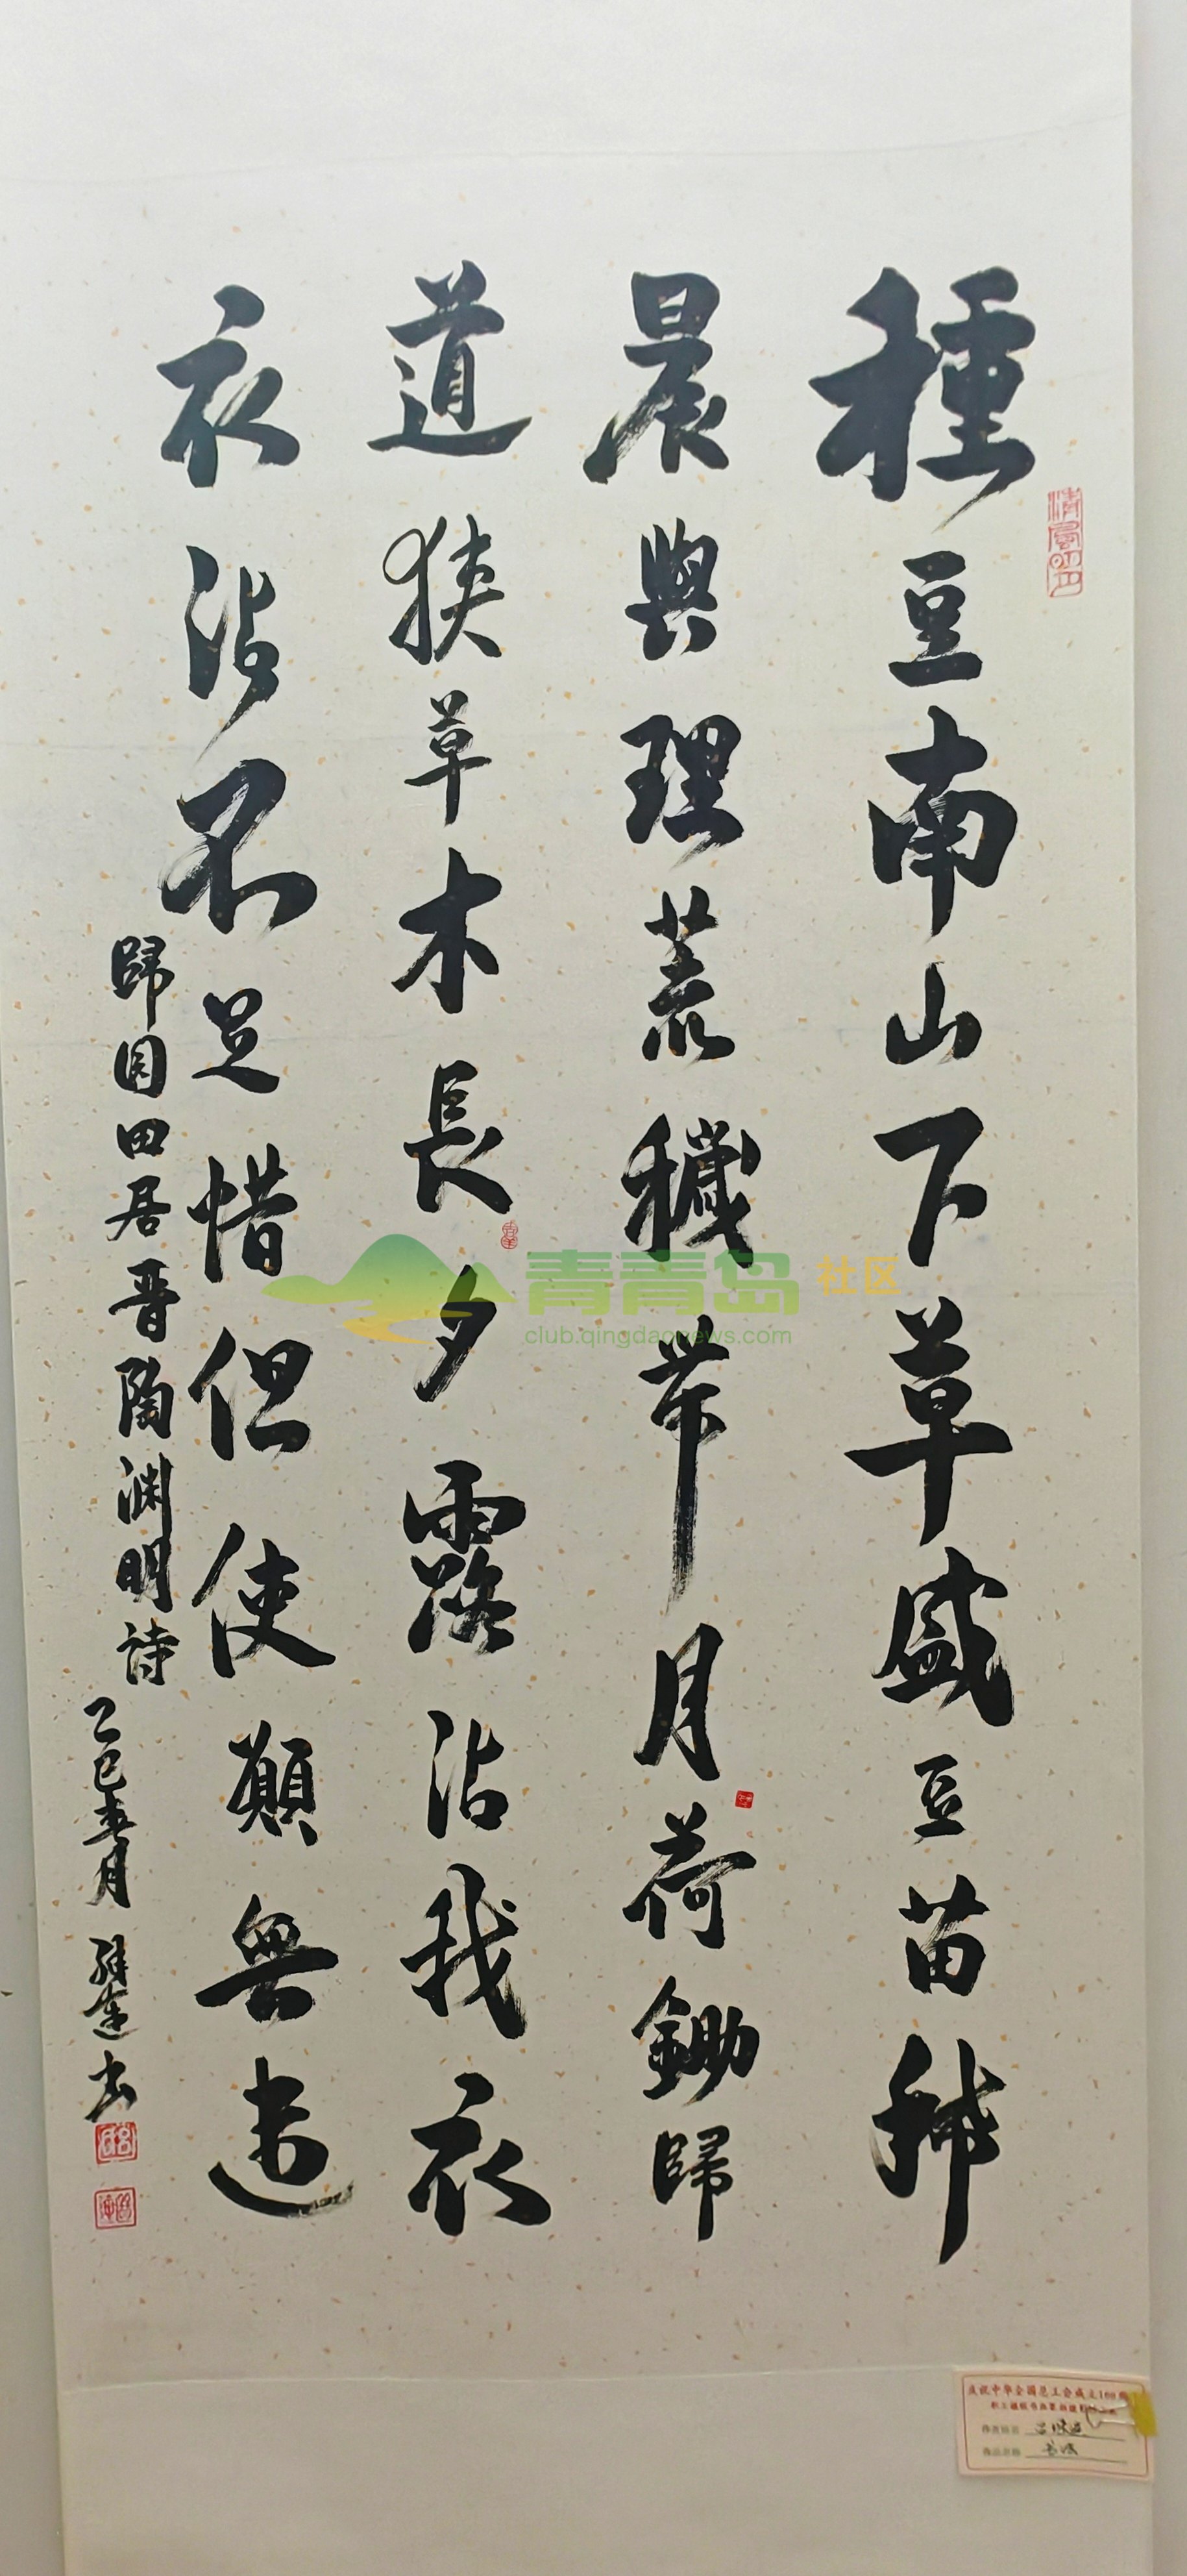 種豆南山下草盛豆苗稀
晨興理荒穢帶月荷鋤歸
道狹草木長夕露沾我衣
衣沾不足惜但使願無違
歸園田居晋陶渊明詩
乙巳春月
書
青青岛社区
club.qingdaonews.com
庆祝中华全国总工会成立100周
作者姓名
作品名称 书法